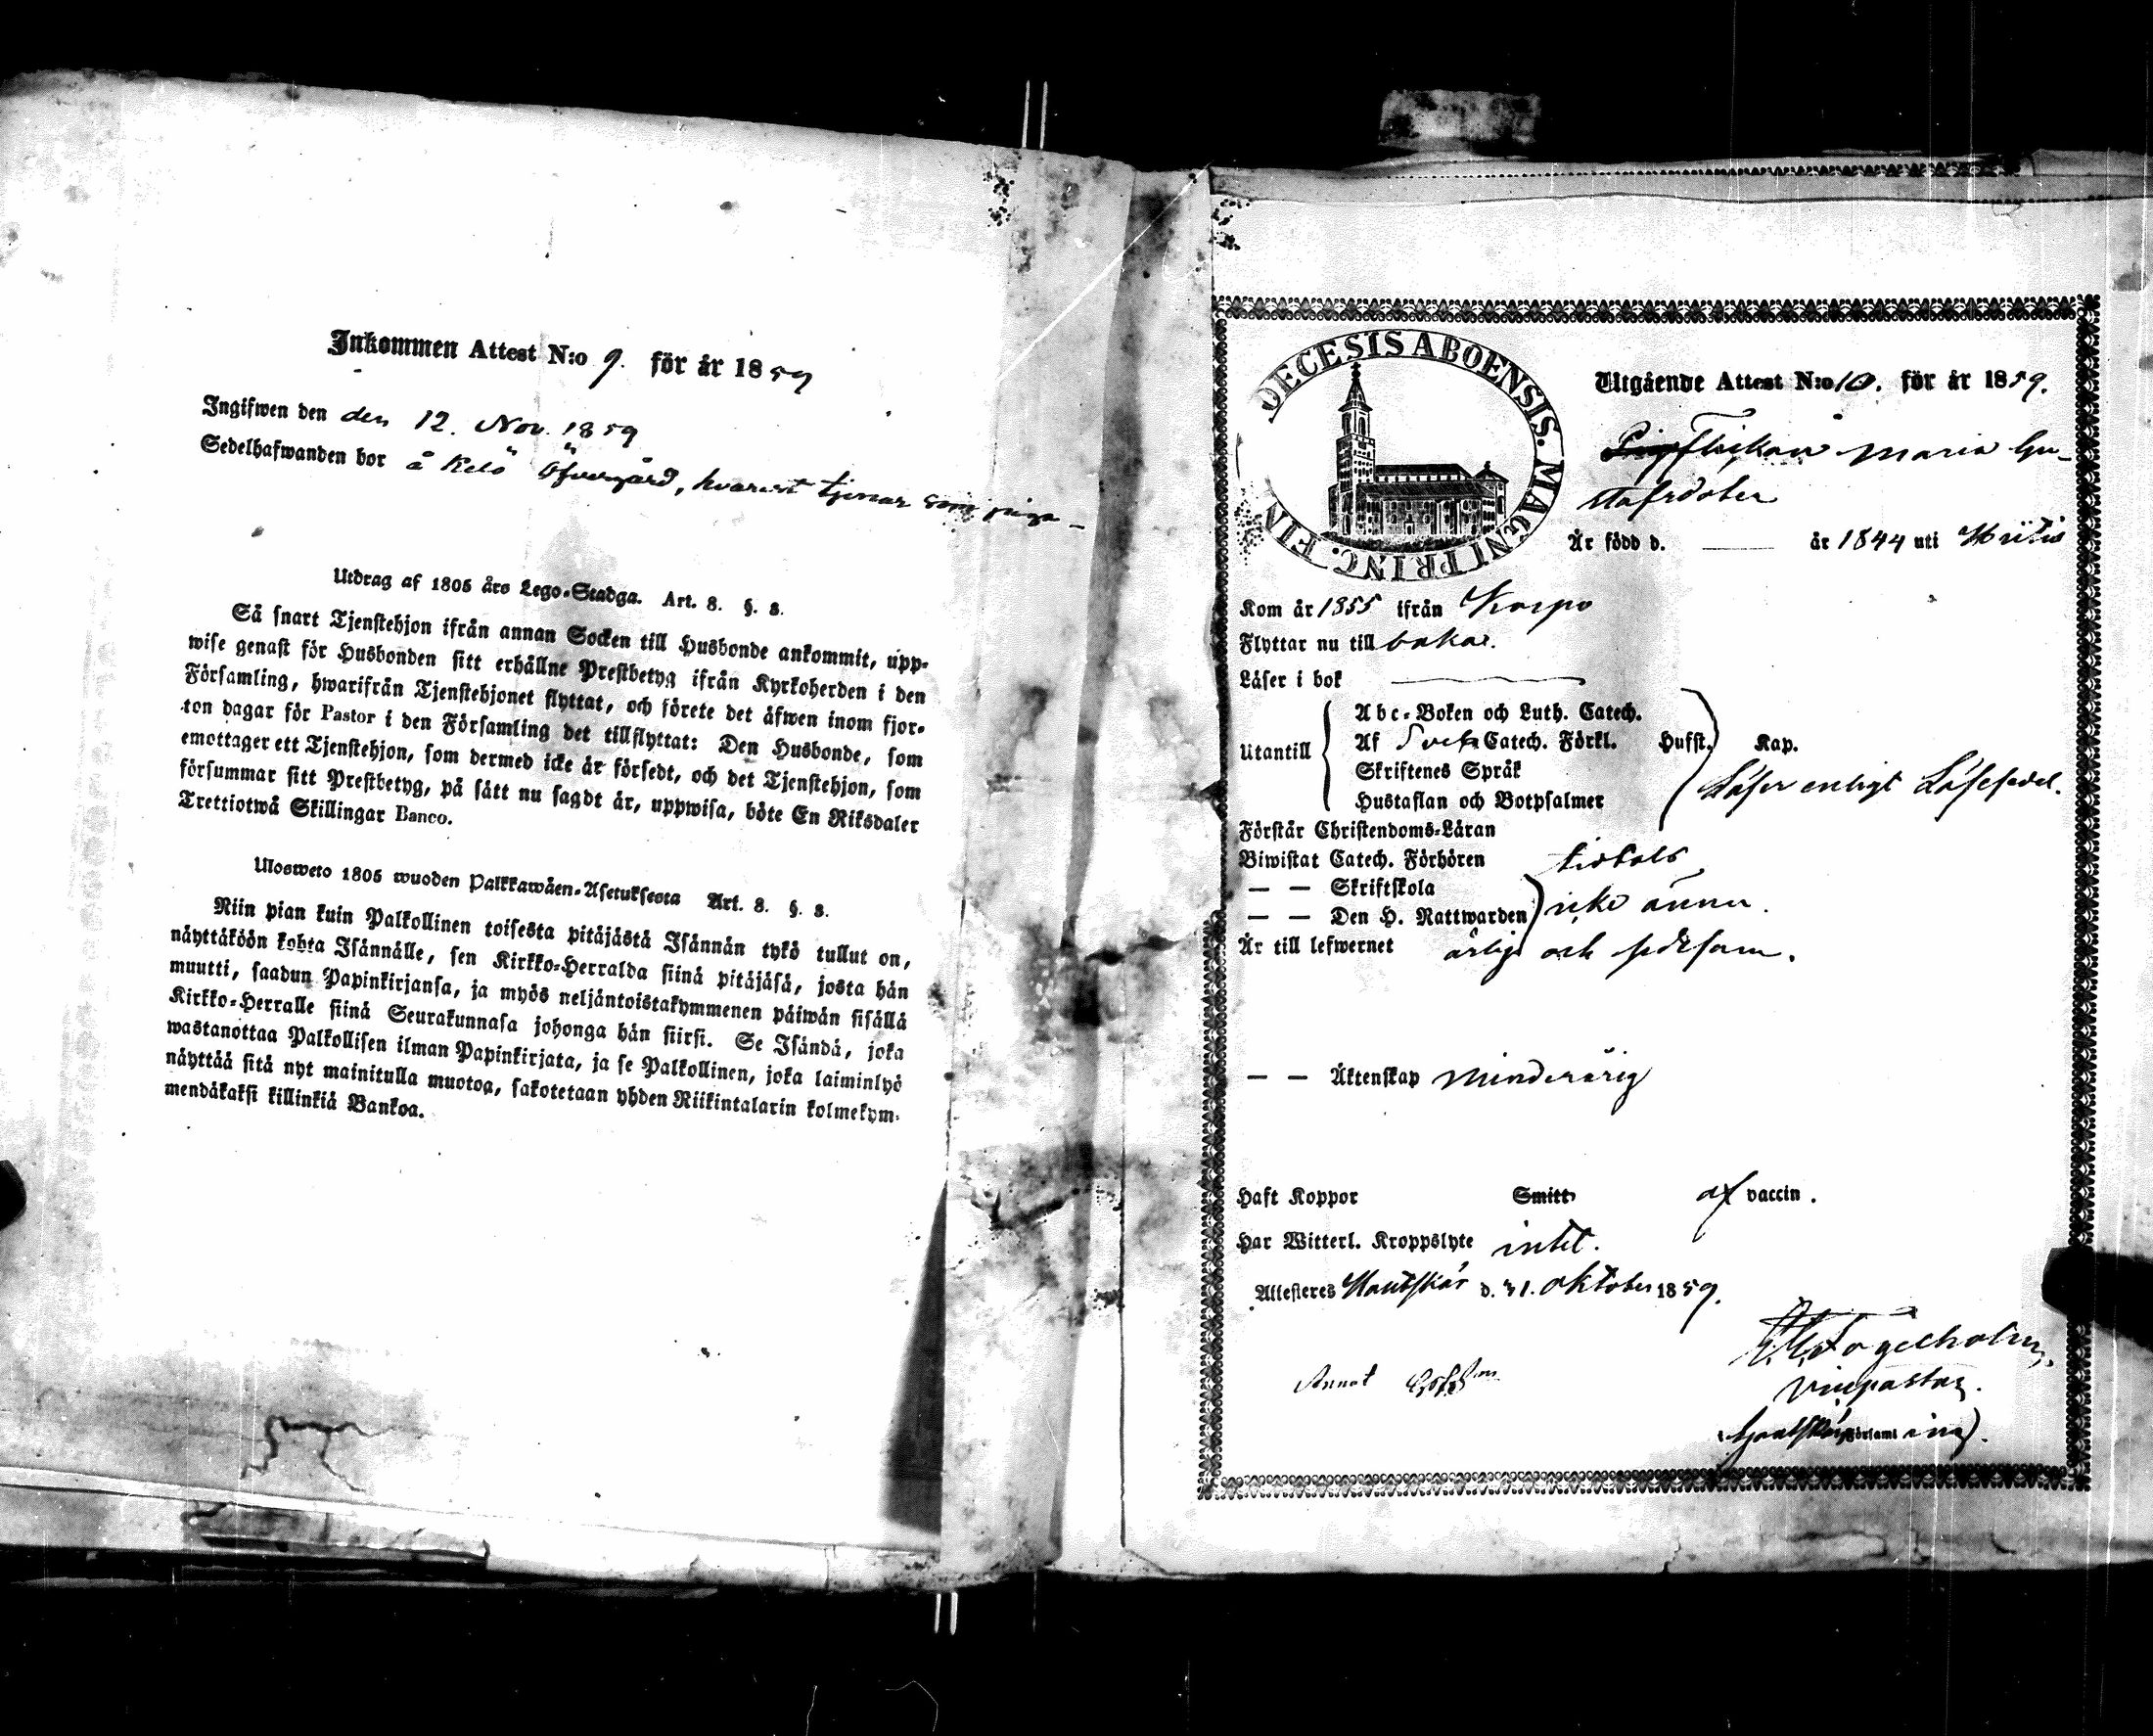 Inkommen Attest N:o 9. för år 1859
Ingifwen den den 12. Nov. 1859
Sedelhafwanden bor å Kelö Öfvergård, hvarest tjenar som piga –
Utdrag af 1805 års Lego-Stadga. Art. 8. §. 8.
Så snart Tjenstehjon ifrån annan Socken till Husbonde ankommit, upp-
wise genast för Husbonden sitt erhållne Prestbetyg ifrån Kyrkoherden i den
Församling, hwarifrån Tjenstehjonet flyttat, och förete det äfwen inom fjor-
ton dagar för Pastor i den Församling det tillflyttat: Den Husbonde, som
emottager ett Tjenstehjon, som dermed icke är försedt, och det Tjenstehjon, som
försummar sitt Prestbetyg, på sätt nu sagdt är, uppwisa, böte En Riksdaler
Trettiotwå Skillingar Banco.
Ulosweto 1805 wuoden Palkkawäen-Asetuksesta Art. 8. §. 8.
Niin pian kuin Palkollinen toisesta pitäjästä Isännän tykö tullut on,
näyttäköön kohta Isännälle, sen Kirkko-Herralda siinä pitäjäsä, josta hän
muutti, saadun Papinkirjansa, ja myös neljäntoistakymmenen päiwän sisällä
Kirkko-Herralle siinä Seurakunnasa johonga hän siirsi. Se Isändä, joka
wastanottaa Palkollisen ilman Papinkirjata, ja se Palkollinen, joka laiminlyö
näyttää sitä nyt mainitulla muotoa, sakotetaan yhden Riikintalarin kolmekym-
mendäkaksi killinkiä Bankoa.
DECESIS ABOENSIS. MAGNI PRINC. FIN
Utgående Attest N:o 10. för år 1859.
Flickan Maria Gu-
stafsdoter
Är född d. —— år 1844 uti Hiitis
Kom år 1855 ifrån Korpo
Flyttar nu till bakar.
Läser i bok ——
Abc-Boken och Luth. Catech.
Utantill Af Sveb. Catech. Förkl. Husst. Kap.
Skriftenes Språk
Läser enligt Läsesedel.
Hustaflan och Botpsalmer
Förstår Christendoms-Läran
Biwistat Catech. Förhören tidtals
— — Skriftskola
— — Den H. Nattwarden icke ännu.
Är till lefwernet ärlig och sedesam.
— — Äktenskap Minderårig
Haft Koppor Smitt af vaccin.
Har Witterl. Kroppslyte intet.
Attesteres Houtskär d. 31. Oktober 1859.
Fogelholm,
Vicepastor.
Annot
Houtskär Församl ing.